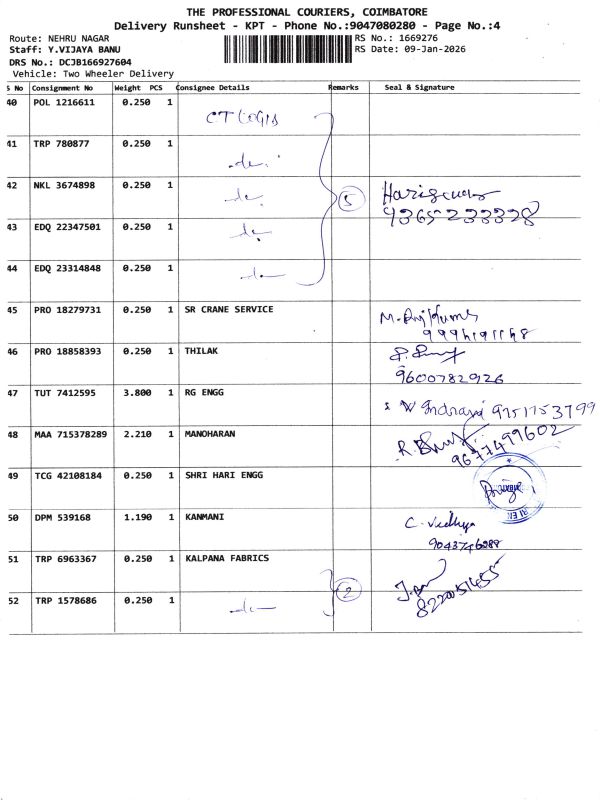 THE PROFESSIONAL COURIERS, COIMBATORE
Delivery Runsheet - KPT - Phone No.:9047080280 - Page No.:4
Route: NEHRU NAGAR
RS No.: 1669276
Staff: Y.VIJAYA BANU
RS Date: 09-Jan-2026
DRS No.: DCJB166927604
Vehicle: Two Wheeler Delivery
S No Consignment No Weight PCS Consignee Details Remarks Seal & Signature
40 POL 1216611 0.250 1 CT LOGIS
41 TRP 780877 0.250 1 -do-
42 NKL 3674898 0.250 1 -do- 5
43 EDQ 22347501 0.250 1 -do-
44 EDQ 23314848 0.250 1 -do-
45 PRO 18279731 0.250 1 SR CRANE SERVICE
46 PRO 18858393 0.250 1 THILAK
9600782926
47 TUT 7412595 3.800 1 RG ENGG
9751753799
48 MAA 715378289 2.210 1 MANOHARAN
9677499602
49 TCG 42108184 0.250 1 SHRI HARI ENGG
50 DPM 539168 1.190 1 KANMANI C. Vidhya
9043746288
51 TRP 6963367 0.250 1 KALPANA FABRICS 2
52 TRP 1578686 0.250 1 -do-